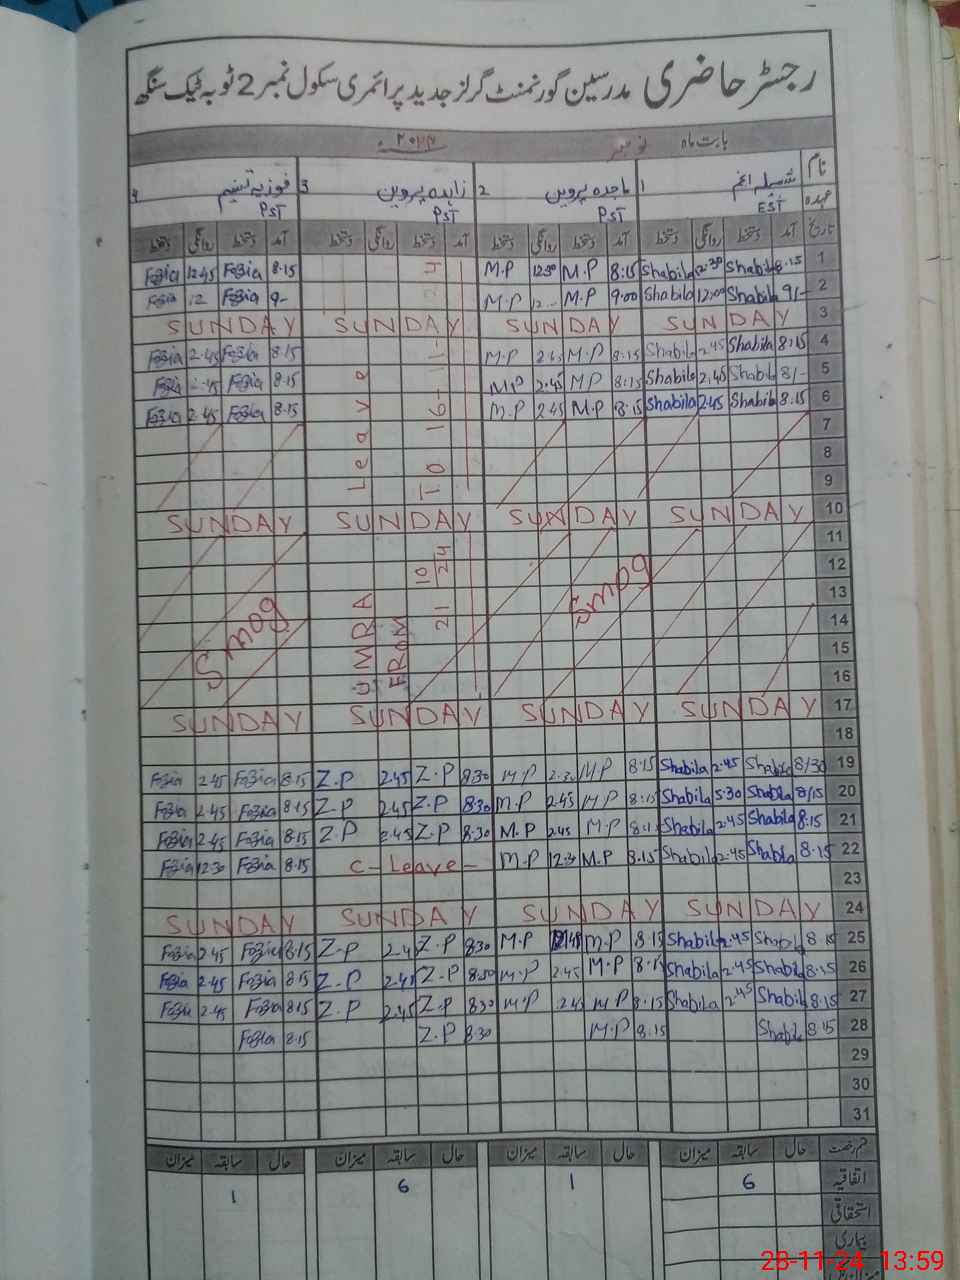 رجسٹر حاضری مدرسین گورنمنٹ گرلز جدید پرائمری سکول نمبر 2 ٹوبہ ٹیک سنگھ
بابت ماہ نومبر
نام 1 2 ماجدہ پروین 3 زاہدہ پروین 4 فوزیہ تسنیم
عہدہ EST PST PST PST
تاریخ آمد دستخط روانگی دستخط آمد دستخط روانگی دستخط آمد دستخط روانگی دستخط آمد دستخط روانگی دستخط
1 8.15 Shabila 2.30 Shabila 8.15 M.P 12.30 M.P 8.15 Fozia 12.45 Fozia
2 9/- Shabila 12:00 Shabila 9.00 M.P 12 M.P 9- Fozia 12 Fozia
3 SUNDAY SUNDAY SUNDAY SUNDAY
4 8.15 Shabila 2.45 Shabila 8.15 M.P 2.45 M.P 8.15 Fozia 2.45 Fozia
5 8/- Shabila 2.45 Shabila 8.15 MP 2.45 MP 8.15 Fozia Fozia
6 8.15 Shabila 2.45 Shabila 8.15 M.P 2.45 M.P 8.15 Fozia 2.45 Fozia
7
8
9
10 SUNDAY SUNDAY SUNDAY SUNDAY
11
12
13
14
15
16
Smog
UMRA Leave
FROM 21 10 24 TO 16-11-24
Smog
17 SUNDAY SUNDAY SUNDAY SUNDAY
18
19 8/30 Shabila 2.45 Shabila 8.15 MP 2.30 M.P 8.30 Z.P 2.45 Z.P 8.15 Fozia 2.45 Fozia
20 8/15 Shabila 5.30 Shabila 8.15 M.P 2.45 M.P 8.30 Z.P 2.45 Z.P 8.15 Fozia 2.45 Fozia
21 8.15 Shabila 2.45 Shabila M.P 2.45 M.P 8.30 Z.P 2.45 Z.P 8.15 Fozia 2.45 Fozia
22 8.15 Shabila 2.45 Shabila 8.15 M.P 12.30 M.P C-Leave- 8.15 Fozia 12.30 Fozia
23
24 SUNDAY SUNDAY SUNDAY SUNDAY
25 8.15 Shabila 2.45 Shabila 8.15 M.P M.P 8.30 Z.P 2.4 Z.P 8.15 Fozia 2.45 Fozia
26 8.15 Shabila 2.45 Shabila 8.15 M.P 2.45 M.P 8.30 Z.P 2.45 Z.P 8.15 Fozia 2.45 Fozia
27 8.15 Shabila 2.45 Shabila 8.15 M.P 2.45 M.P 8.30 Z.P 2.45 Z.P 8.15 Fozia 2.45 Fozia
28 8.15 Shabila 8.15 M.P 8.30 Z.P 8.15 Fozia
29
30
31
قسم رخصت حال سابقہ میزان حال سابقہ میزان حال سابقہ میزان حال سابقہ میزان
اتفاقیہ 6 1 6 1
استحقاقی
بیماری
28-11-24 13:59